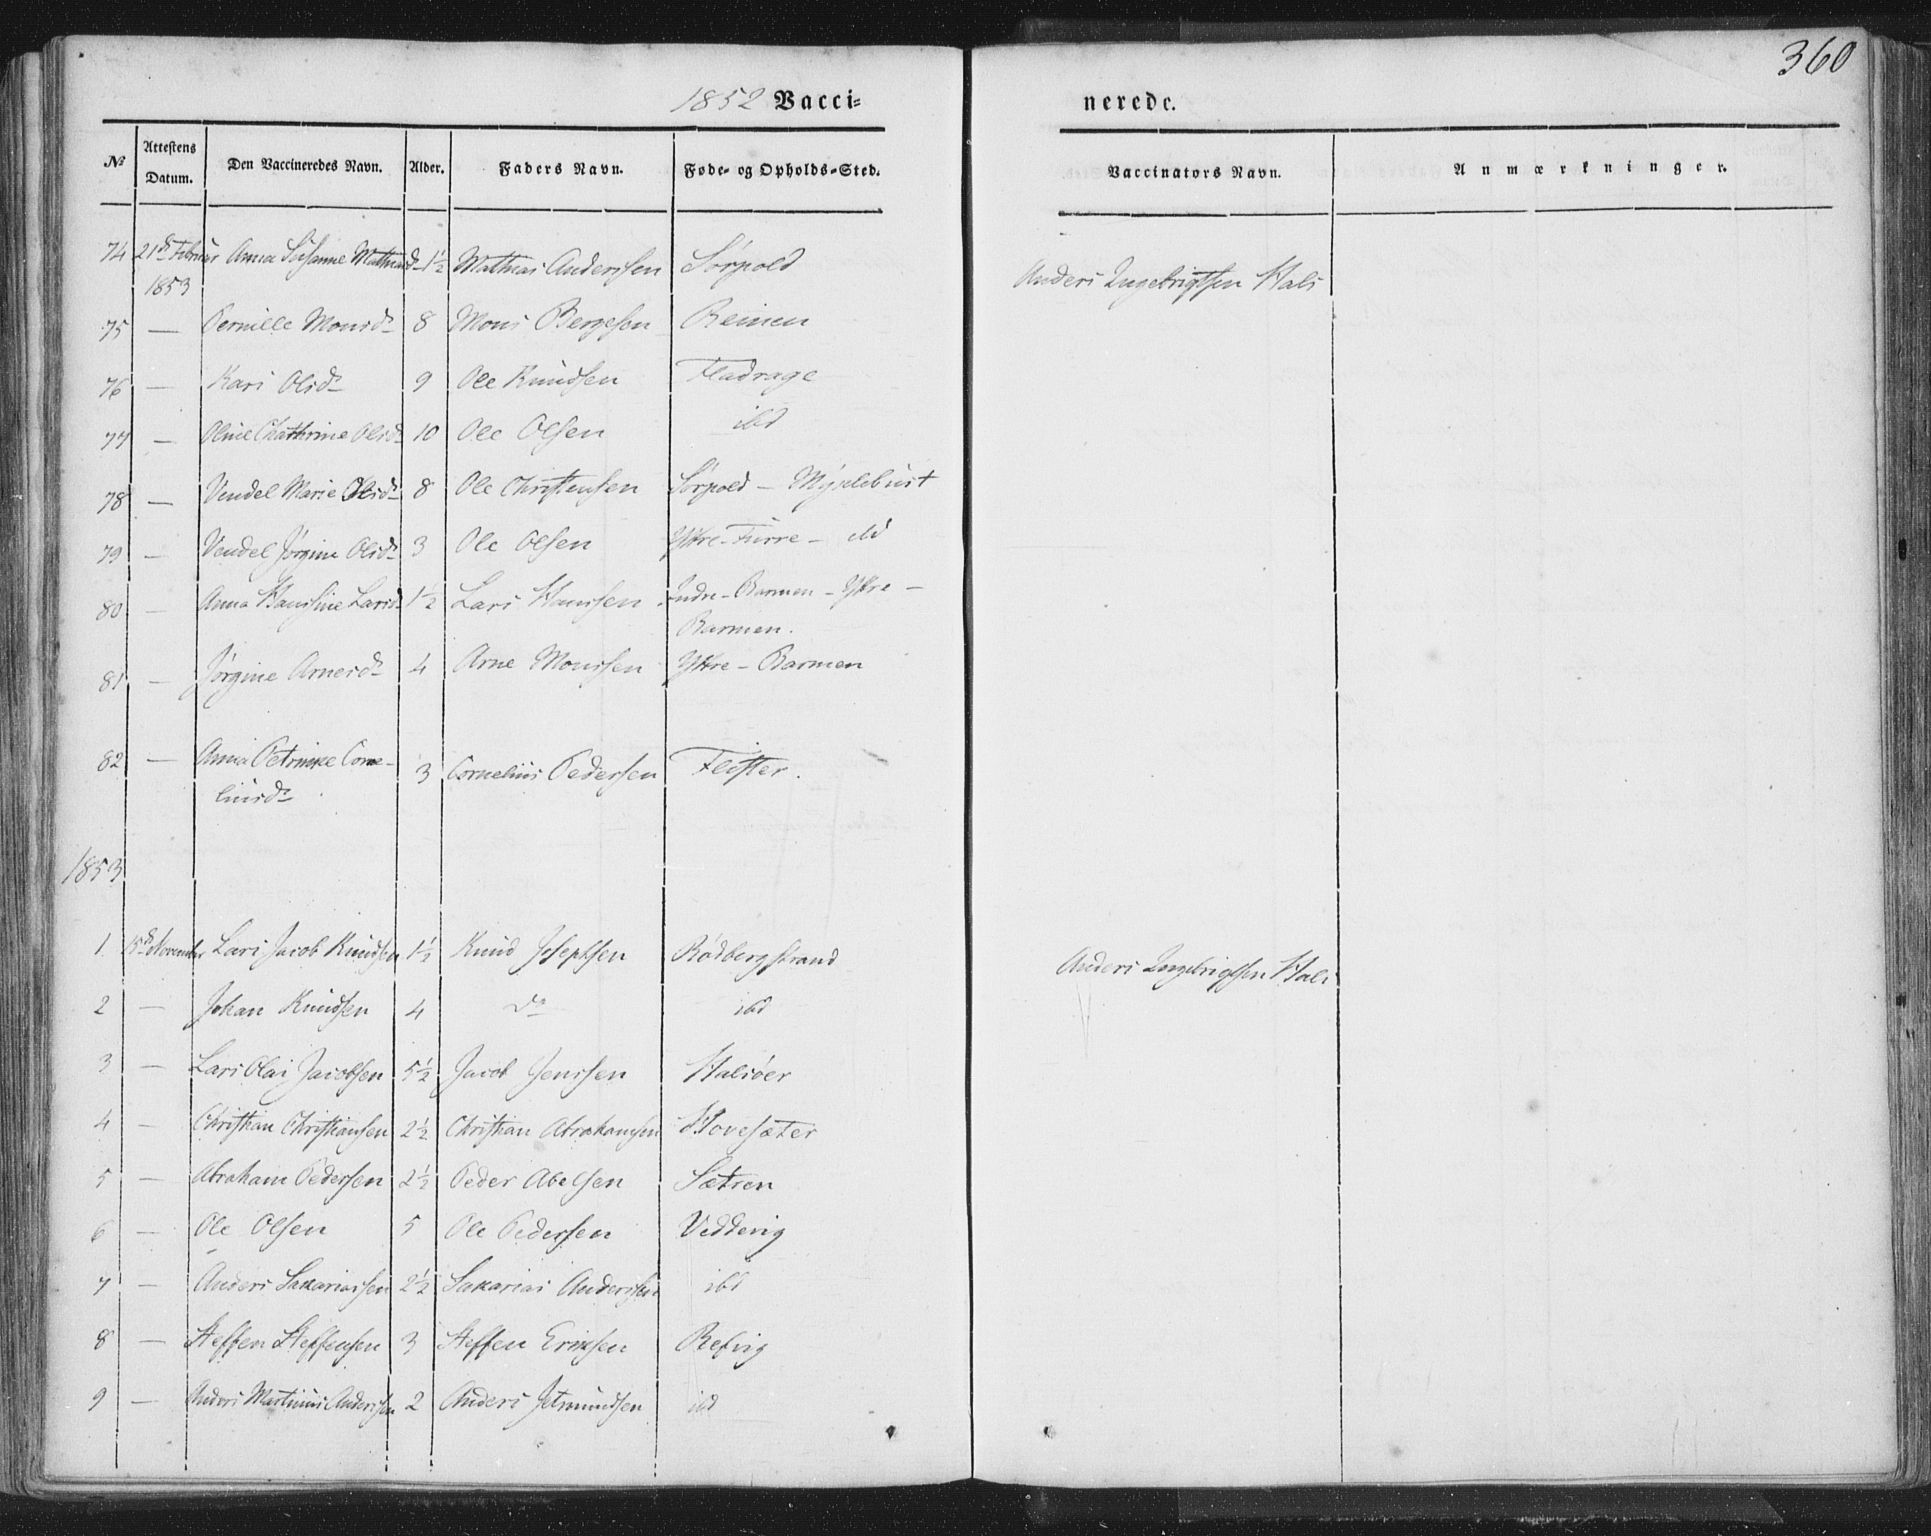 360
1852 Vacci= nerede.
No Attestens Datum. Den Vaccineredes Navn. Alder. Faders Navn. Føde- og Opholds-Sted. Vaccinators Navn. Anmærkninger.
74 21de Februar Anna Susanne Mathiasdr 1½ Mathias Anderssen Sørpold Anders Ingebrigtsen Hals
1853
75 — Pernille Monsdr 8 Mons Bergeson Reimen
76 — Kari Olsdr 9 Ole Knudsen Fladrage
77 — Oline Chathrine Olsdr 10 Ole Olsen ibd
78 — Vendel Marie Olsdr 8 Ole Christensen Sørpold — Myklebust
79 — Vendel Jørgine Olsdr 3 Ole Olsen Yttre-Furre — ibd
80 — Anna Hansine Larsdr 1½ Lars Hanssen Indre-Barmen — Yttre —
Barmen.
81 — Jørgine Arnesdr 4 Arne Monssen Yttre-Barmen
82 — Anna Petrikke Corne-
liusdr 3 Cornelius Pedersen Flister.
1853
1 15de November Lars Jacob Knudsen 1½ Knud Josephsen Rødbergstrand Anders Ingebrigtsen Hals
2 — Johan Knudsen 4 do ibd
3 — Lars Olai Jacobsen 5½ Jacob Jenssen Halsøer
4 — Christian Christiansen 2½ Christian Abrahamsen Hovesæter
5 — Abraham Pedersen 2½ Peder Abelsen Sætren
6 — Ole Olsen 5 Ole Pedersen Vedderig
7 — Anders Sakariassen 2½ Sakarias Anderssen ibd
8 — Steffen Steffensen 3 Steffen Eriksen Refvig
9 — Anders Martinus Anderssen 2 Anders Jetmundsen ibd